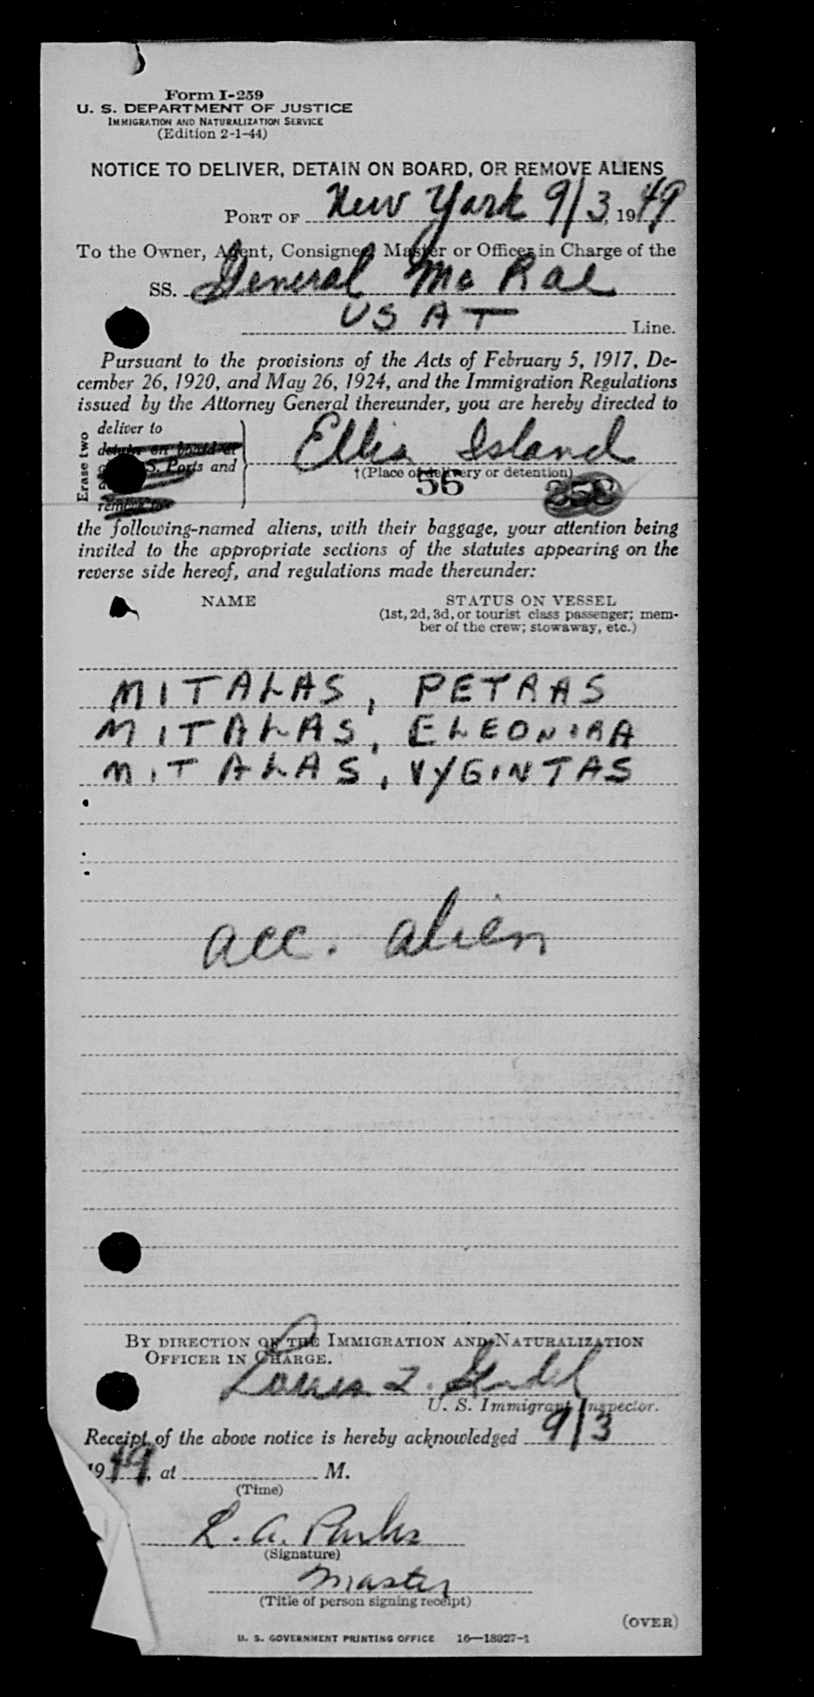 Form I-259
U. S. DEPARTMENT OF JUSTICE
IMMIGRATION AND NATURALIZATION SERVICE
(Edition 2-1-44)
NOTICE TO DELIVER, DETAIN ON BOARD, OR REMOVE ALIENS
PORT OF New York 9/3, 1949
To the Owner, Agent, Consignee, Master or Officer in Charge of the
SS. General Mc Rae
USAT Line.
Pursuant to the provisions of the Acts of February 5, 1917, De-
cember 26, 1920, and May 26, 1924, and the Immigration Regulations
issued by the Attorney General thereunder, you are hereby directed to
Erase two
deliver to
detain on board at
S. Ports and
remove to
Ellis Island
†(Place of delivery or detention)
56
the following-named aliens, with their baggage, your attention being
invited to the appropriate sections of the statutes appearing on the
reverse side hereof, and regulations made thereunder:
NAME STATUS ON VESSEL
(1st, 2d, 3d, or tourist class passenger; mem-
ber of the crew; stowaway, etc.)
MITALAS, PETRAS
MITALAS, ELEONIRA
MITALAS, VYGINTAS
acc. alien
BY DIRECTION OF THE IMMIGRATION AND NATURALIZATION
OFFICER IN CHARGE.
Louis
U. S. Immigrant Inspector.
Receipt of the above notice is hereby acknowledged 9/3
1949, at M.
(Time)
R. A. Parks
(Signature)
Master
(Title of person signing receipt)
(OVER)
U. S. GOVERNMENT PRINTING OFFICE 16—18927-1